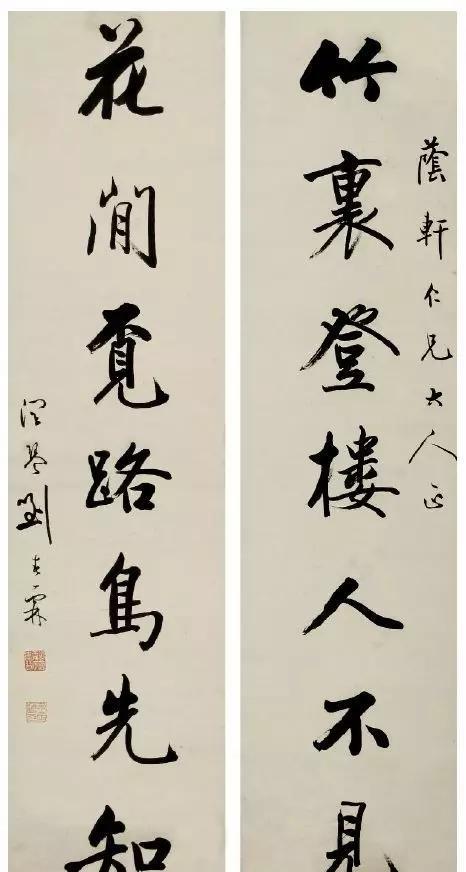 蔭軒仁兄大人正
竹裏登樓人不見
花閒覔路鳥先知
潤琴劉春霖